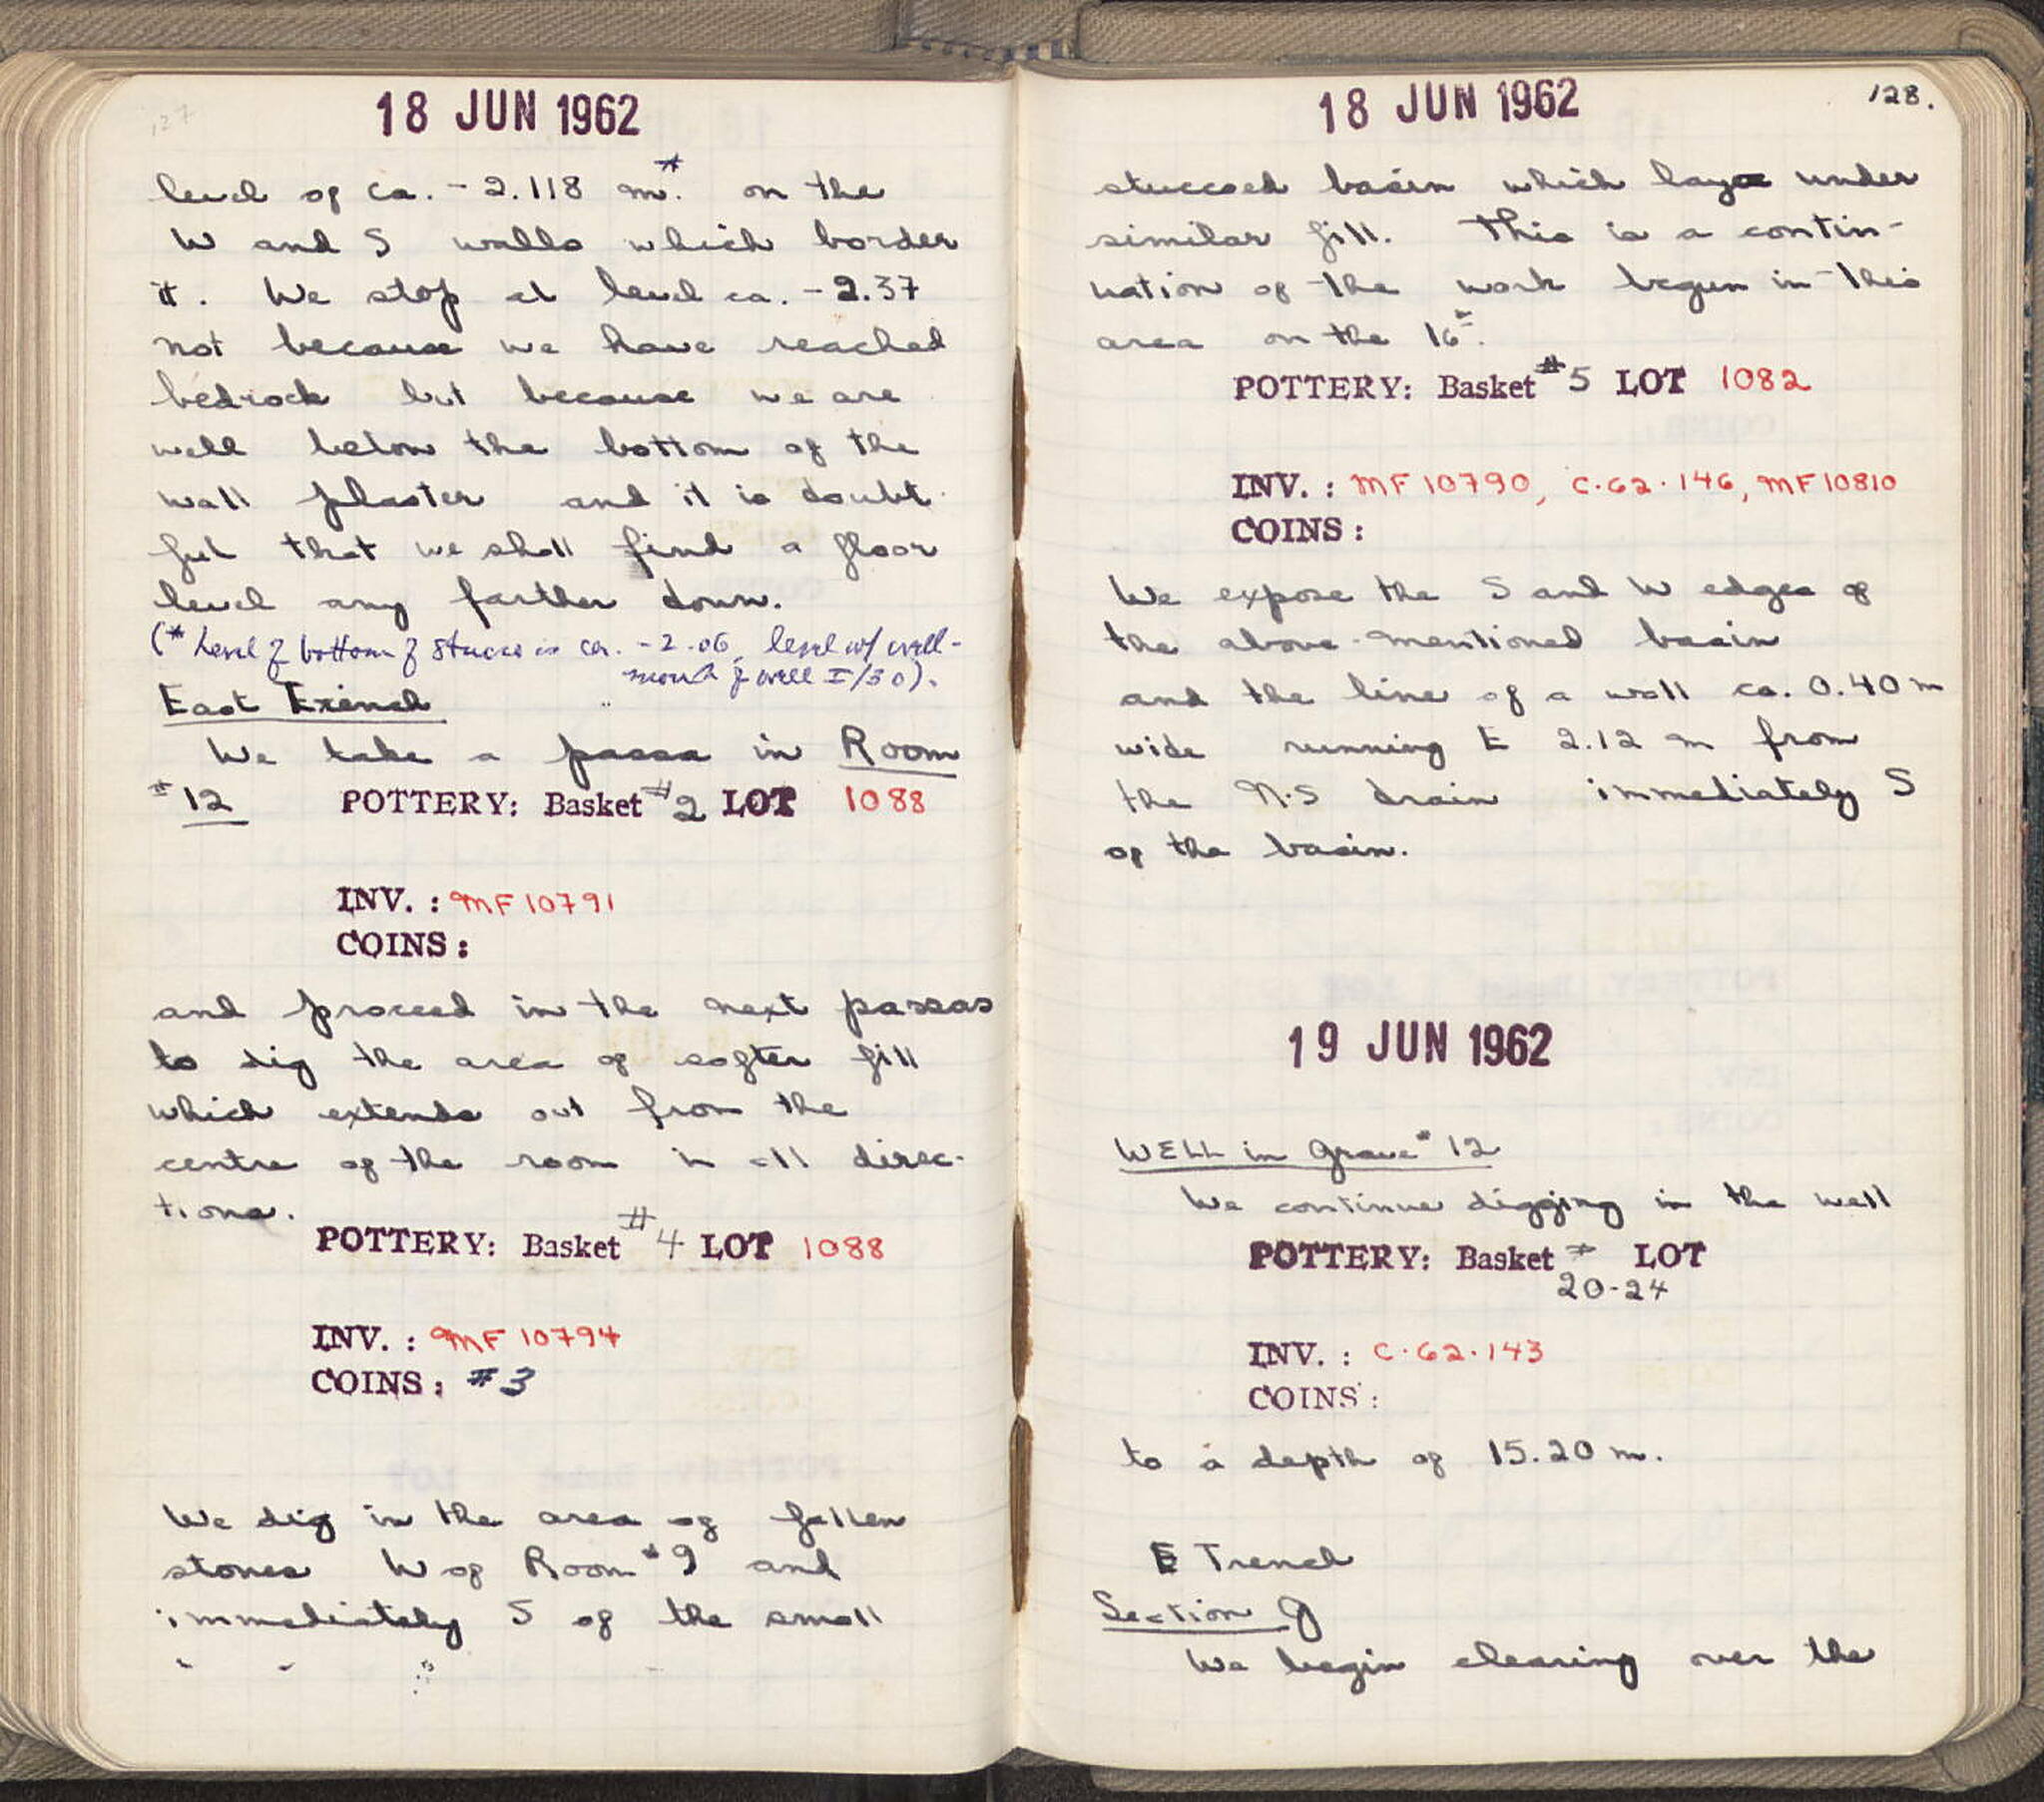 127
18 JUN 1962
level of ca. - 2.118 m.* on the
W and S walls which border
it. We stop at level ca. - 2.37
not because we have reached
bedrock but because we are
well below the bottom of the
wall plaster and it is doubt-
ful that we shall find a floor
level any farther down.
(* Level of bottom of stucco is ca. -2.06, level w/ well-
mouth of well I/30).
East Trench
We take a passa in Room
#12 POTTERY: Basket #2 LOT 1088
INV. : MF 10791
COINS :
and proceed in the next passas
to dig the area of softer fill
which extends out from the
centre of the room in all direc-
tions.
POTTERY: Basket #4 LOT 1088
INV. : MF 10794
COINS : #3
We dig in the area of fallen
stones W of Room #9 and
immediately S of the small
18 JUN 1962
128.
stuccoed basin which lay under
similar fill. This is a contin-
uation of the work begun in this
area on the 16th.
POTTERY: Basket #5 LOT 1082
INV. : MF 10790, C.62.146, MF 10810
COINS :
We expose the S and W edges of
the above-mentioned basin
and the line of a wall ca. 0.40 m
wide running E 2.12 m from
the N-S drain immediately S
of the basin.
19 JUN 1962
WELL in Grave #12
We continue digging in the well
POTTERY: Basket # LOT
20-24
INV. : C.62.143
COINS :
to a depth of 15.20 m.
E Trench
Section J
We begin clearing over the